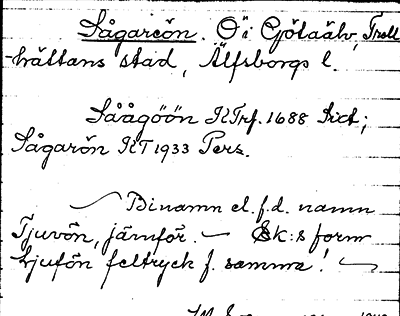 Sågareön. Ö i Götaälv, Troll
hättans stad, Älfsborgs l.
Såågöön RTrf. 1688
Sågarön RT 1933 Pers.
Binamn el. f.d. namn
Tjuvön, jämför. Ek:s form
hjufön feltryck f. samma!